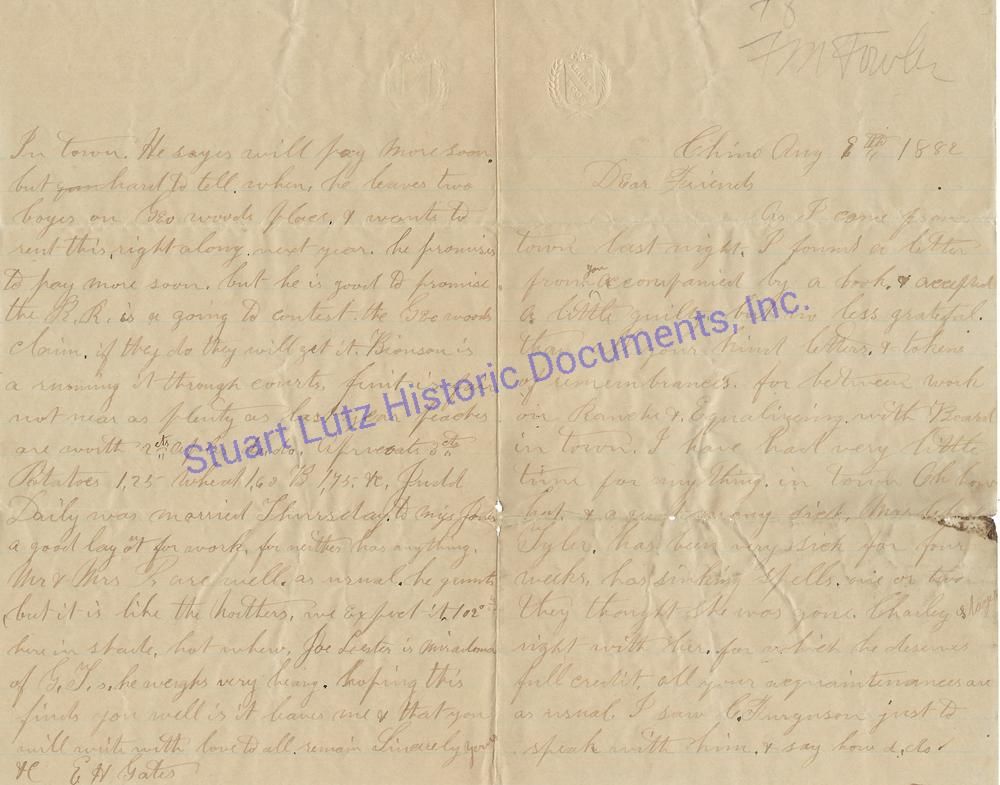 F M Fowler
Chino Aug 8th 1882
Dear Friends
As I came from
town last night. I found a letter
from you accompanied by a book, & accepted
a little guilty but no less grateful.
than your kind letters, & tokens
of remembrances. for between work
on Ranche & Equalizing with Board
in town. I have had very little
time for anything. in town Oh how
hot, & a great many sick, Mrs
Tyler. has been very sick for four
weeks, has sinking spells. one or two
they thought she was gone. Charley
right with her. for which he deserves
full credit. all your acquaintenances are
as usual. I saw C. Furguson just to
speak with him. & say how d, do
In town. He sayes will pay more soon
but hard to tell when, he leaves two
boyes on Geo woods place. & wants to
rent this, right along, next year. he promises
to pay more soon. but he is good to promise
the R.R. is a going to contest the Geo woods
claim. if they do they will get it. Bronson is
a running it through courts, fruit is
not near as plenty as last year peaches
are worth cts
Potatoes 1,25 wheat 1,60 B 1,75 &c, Judd
Daily was married Thursday, to miss Jones
a good lay out for work, for neither has anything.
Mr & Mrs L, are well. as usual. he grunts
but it is like the hotters, we Expect it, 102°
here in shade, hot whew. Joe Lester is
of G.T.s, he weighs very heavy. hoping this
finds you well is it leaves me & that you
will write with love to all. remain Sincerely
&C E H Gates
Stuart Lutz Historic Documents, Inc.